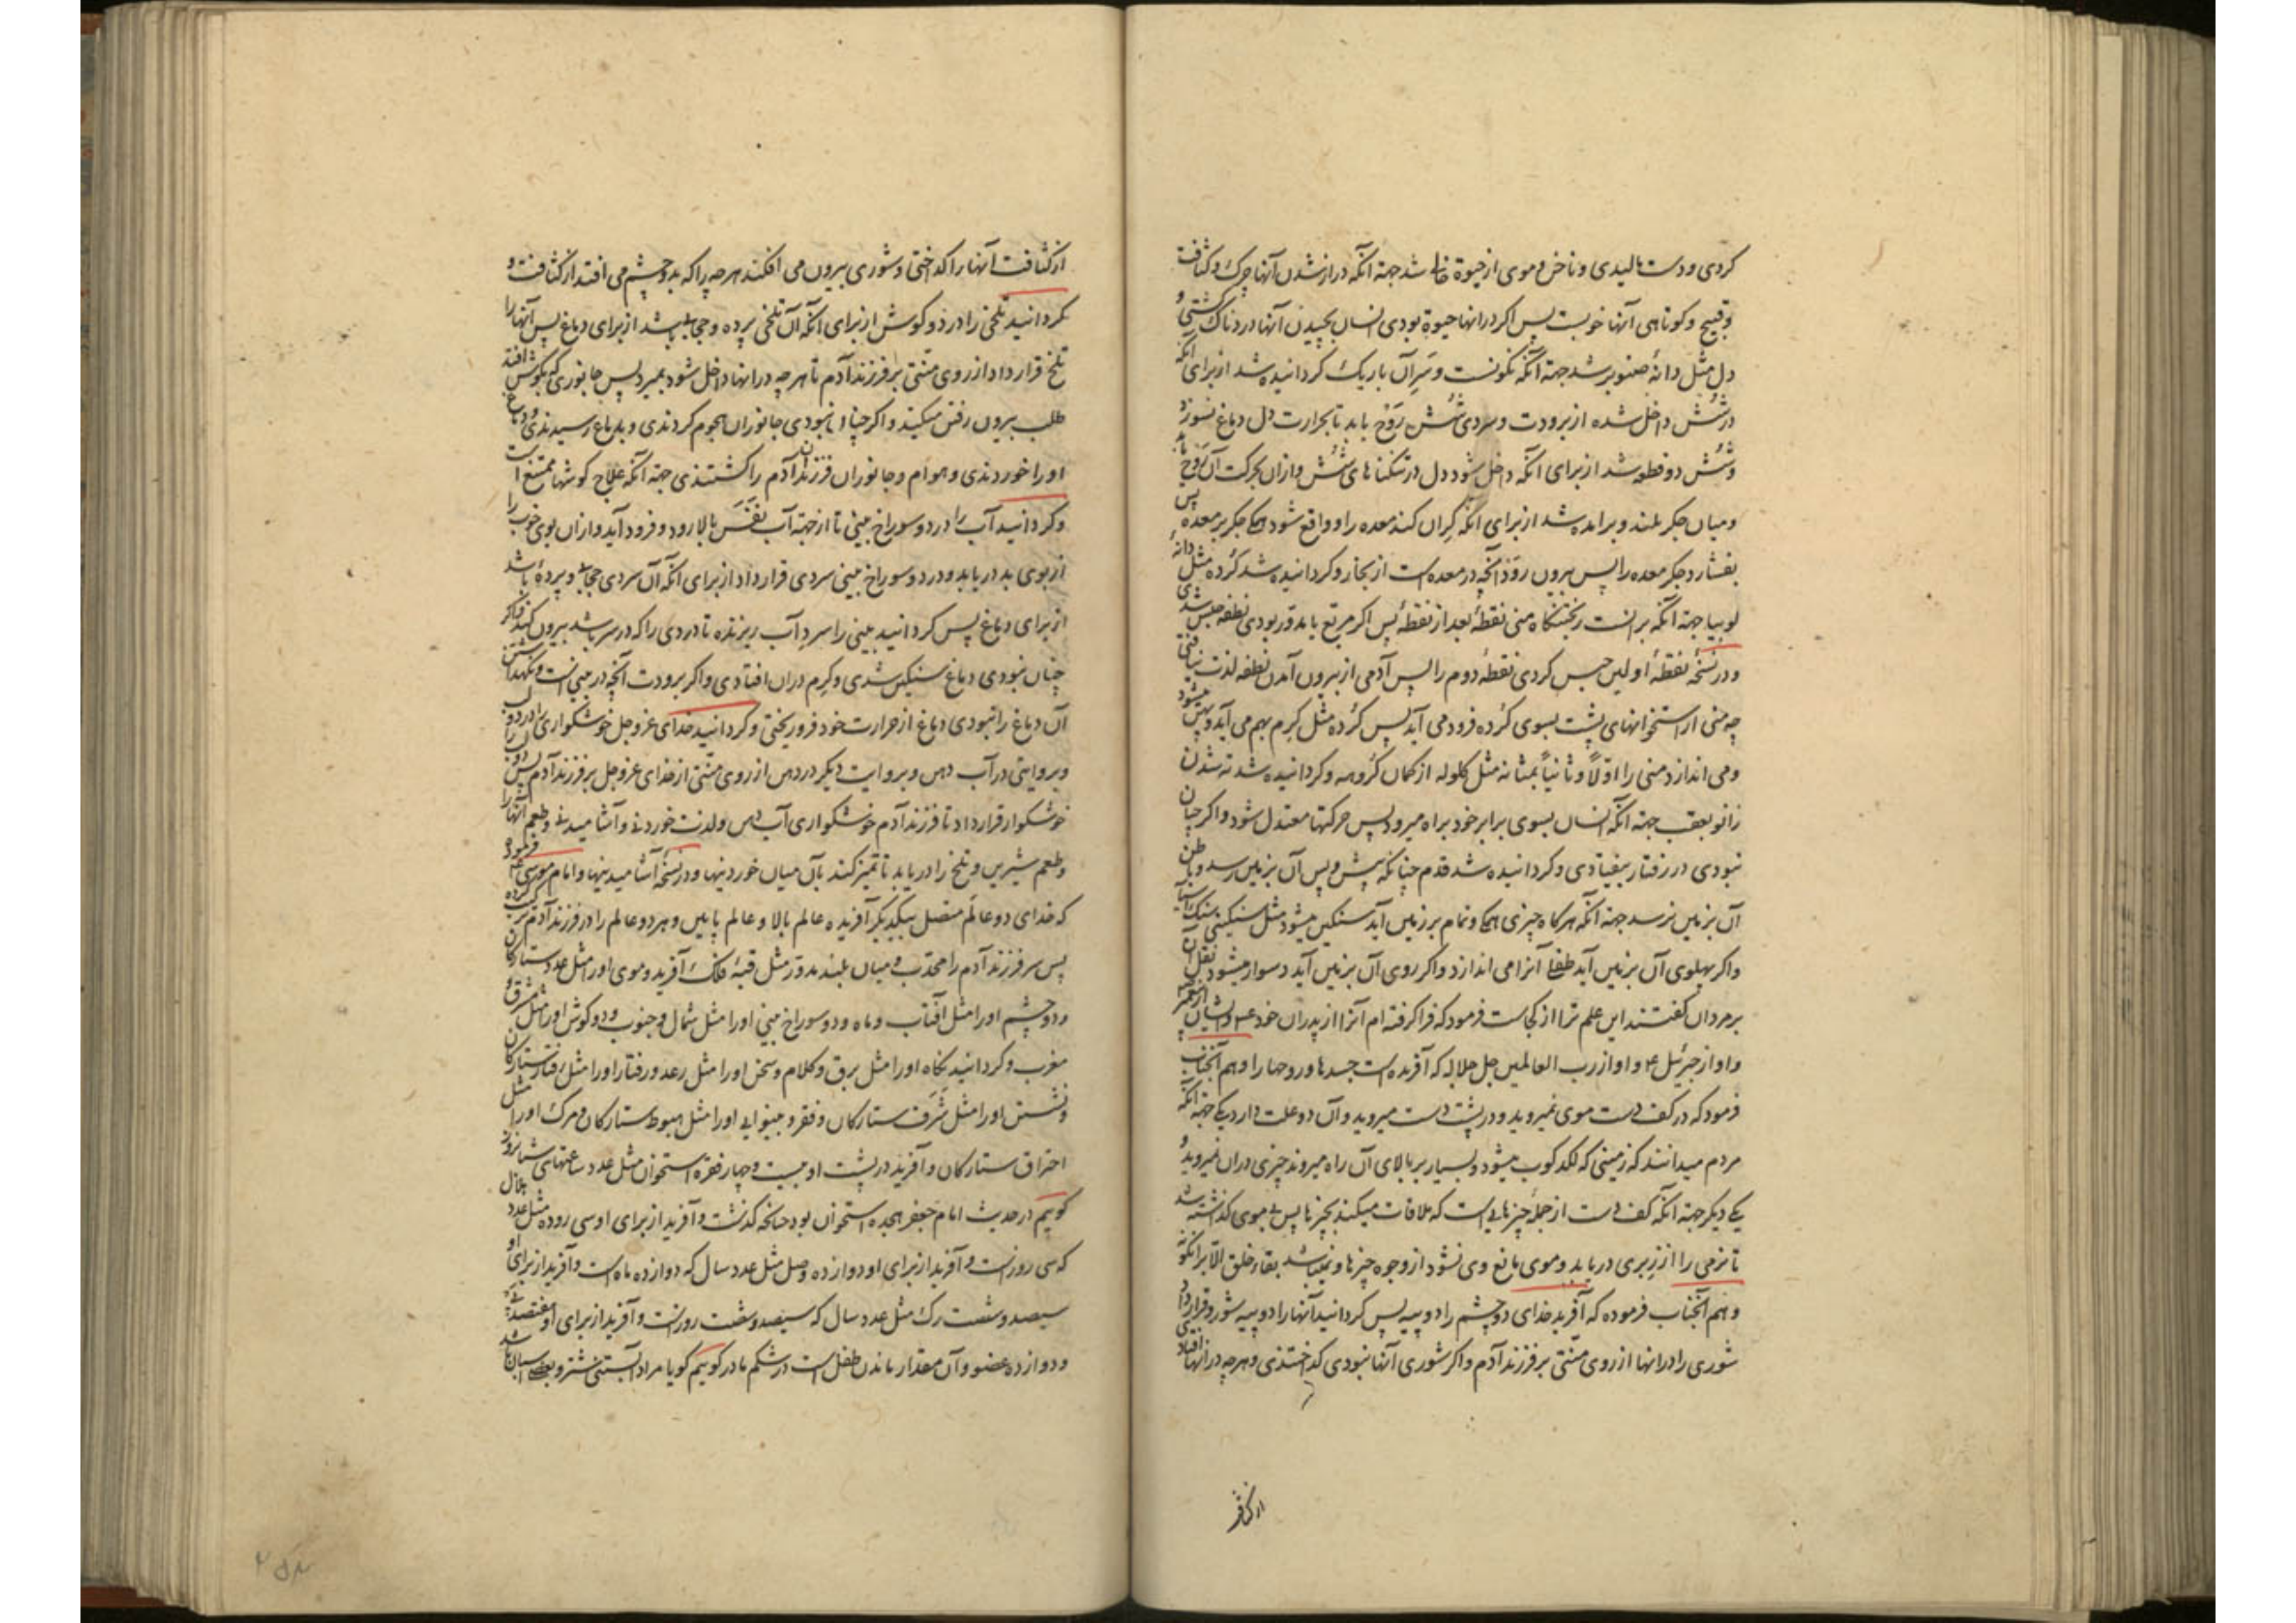 کردی و دست مالیدی و ناخن و موی از حیوة خالی شد جهة آنکه دراز شدن آنها چرک و کثافت
و قبیح و کوتاهی آنها خوبست پس اکر در انها حیوة بودی انسان بچیدن آنها دردناک کشتی و
دل مثل دانهٔ صنوبر شد جهة آنکه نکونست و سر آن باریک کردانیده شد از برای آنکه
در شش داخل شده از برودت و سردی شش روح یابد تا بحرارت دل دماغ نسوزد
و شش دو قطعه شد از برای آنکه داخل شود دل در تنکناهای شش و از ان بحرکت آن روح یابد
و میان جکر بلند و برامده شد از برای آنکه کران کند معده را و واقع شود همکی جکر بر معده پس
بفشارد جکر معده را پس بیرون رود آنچه در معده است از بخار و کردانیده شد کرده مثل دانهٔ
لوبیا جهة آنکه بر انست ریختنکاه منی نقطهٔ بعد از نقطهٔ پس اکر مربع یا مدور بودی نطفه حبس شدی
و در نسخهٔ نقطهٔ اولین حبس کردی نقطهٔ دوم را پس آدمی از بیرون آمدن نطفه لذت نیافتی
چه منی از استخوانهای پشت بسوی کرده فرود می آید پس کرده مثل کرم بهم می آید و پهن میشود
و می اندازد منی را اولاً و ثانیاً بمثانه مثل کلوله از کمان کروهه و کردانیده شد ته شدن
زانو بعقب جهة آنکه انسان بسوی برابر خود براه میرود پس حرکتها معتدل شود و اکر چنان
نبودی در رفتار بیفتادی و کردانیده شد قدم چنانکه پیش و پس آن بزمین رسد و باطن
آن بزمین نرسد جهة آنکه هرکاه چیزی همکی و تمام بر زمین آید سنکین میشود مثل سنکینی سنک آسیا
و اکر بپهلوی آن بزمین آید طفلی آنرا می اندازد و اکر روی آن بزمین آید دشوار میشود نقل آن
بر مردان کفتند این علم ترا از کجاست فرمود که فرا کرفته ام آنرا از پدران خود ع و ایشان از پیغمبر ص
و او از جبرئیل ع و او از رب العالمین جل جلاله که آفریده است جسدها و روحها را و هم آنجناب
فرمود که در کف دست موی نمیروید و در پشت دست میروید و آن دو علت دارد یکی جهة آنکه
مردم میدانند که زمینی که لکدکوب میشود و بسیار بر بالای آن راه میروند چیزی دران نمیروید و
یکی دیکر جهة آنکه کف دست از جمله چیزهایی است که ملاقات میکند بچیزها پس بی موی کذاشته شد
تا نرمی را از زبری دریابد و موی مانع وی نشود از وجوه چیزها و نمیباشد بقاء خلق الّا برانکونه
و هم آنجناب فرموده که آفرید خدای دو چشم را دو پیه پس کردانید آنها را دو پیه شور و قرار داد
شوری را در انها از روی منتی بر فرزند آدم و اکر شوری آنها نبودی کداختندی و هرچه در انها افتادی
از کثافت
از کثافت آنها را کداختی و شوری بیرون می افکند هرچه را که بدو چشم می افتد از کثافت و
کردانید تلخی را در دو کوش از برای آنکه آن تلخی پرده و حجابی باشد از برای دماغ پس آنها را
تلخ قرار داد از روی منتی بر فرزند آدم تا هرچه در انها داخل شود بمیرد پس جانوری که بکوش افتد
طلب بیرون رفتن میکند و اکر چنان نبودی جانوران هجوم کردندی و بدماغ رسیدندی و دماغ
او را خوردندی و هوام و جانوران فرزندان آدم را کشتندی جهة آنکه علاج کوشها ممتنع است
و کردانید آب را در دو سوراخ بینی تا از جهة آب نفس بالا رود و فرود آید و از ان بوی خوب را
از بوی بد دریابد و در دو سوراخ بینی سردی قرار داد از برای آنکه آن سردی حجابی و پردهٔ باشد
از برای دماغ پس کردانید بینی را سرد آب ریزنده تا دردی را که در سر باشد بیرون کند و اکر
چنان نبودی دماغ سنکین شدی و کرم دران افتادی و اکر برودت آنچه در بینی است و نکهداشتن
آن دماغ را نبودی دماغ از حرارت خود فرو ریختی و کردانید خدای عز و جل خوشکواری را در دو لب
و بروایتی در آب دهن و بروایت دیکر در دهن از روی منتی از خدای عز و جل بر فرزند آدم پس دو لب را
خوشکوار قرار داد تا فرزند آدم خوشکواری آب دهن و لذت خوردنی و آشامیدنی و طعم آنها را
و طعم شیرین و تلخ را دریابد تا تمیز کند بآن میان خوردنیها و در نسخهٔ آشامیدنیها و امام موسی ع فرمود
که خدای دو عالم متصل بیکدیکر آفریده عالم بالا و عالم پایین و هر دو عالم را در فرزند آدم ترکیب کرده
پس سر فرزند آدم را محدب و میان بلند مدور مثل قبهٔ فلک آفرید و موی او را مثل عدد ستارکان
و دو چشم او را مثل آفتاب و ماه و دو سوراخ بینی او را مثل شمال و جنوب و دو کوش او را مثل مشرق و
مغرب و کردانید نکاه او را مثل برق و کلام و سخن او را مثل رعد و رفتار او را مثل رفتار ستارکان
و نشستن او را مثل شرف ستارکان و فقر و بینوایی او را مثل هبوط ستارکان و مرک او را مثل
احتراق ستارکان و آفرید در پشت او بیست و چهار فقره استخوان مثل عدد ساعتهای شبانروز
کوییم در حدیث امام جعفر هجده استخوان بود چنانکه کذشت و آفرید از برای او سی روده مثل عدد هلال
که سی روز است و آفرید از برای او دوازده وصل مثل عدد سال که دوازده ماه است و آفرید از برای او
سیصد و شصت رک مثل عدد سال که سیصد و شصت روز است و آفرید از برای او هفتصد پی
و دوازده عضو و آن مقدار ماندن طفل است در شکم مادر کوییم کویا مراد آبستنی شتر و بعضی اسبان باشد